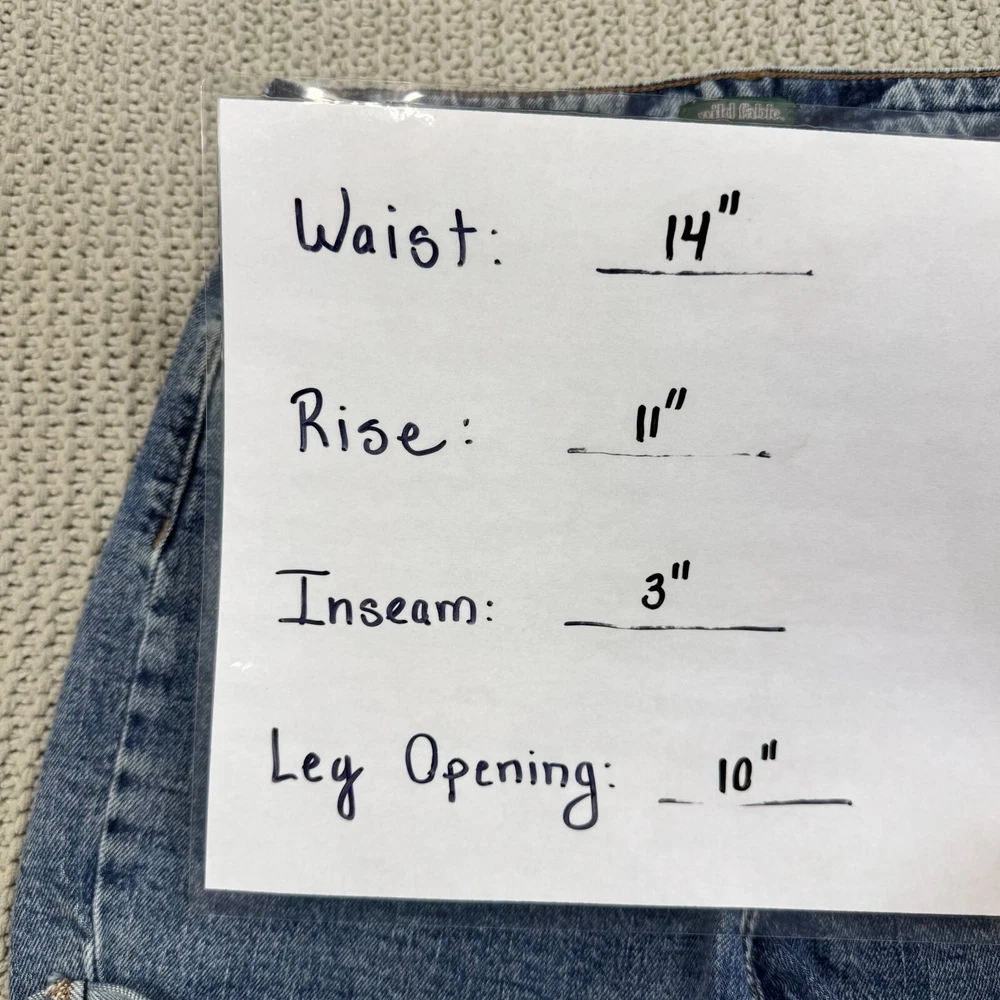 wild fable.
Waist: 14"
Rise: 11"
Inseam: 3"
Leg Opening: 10"